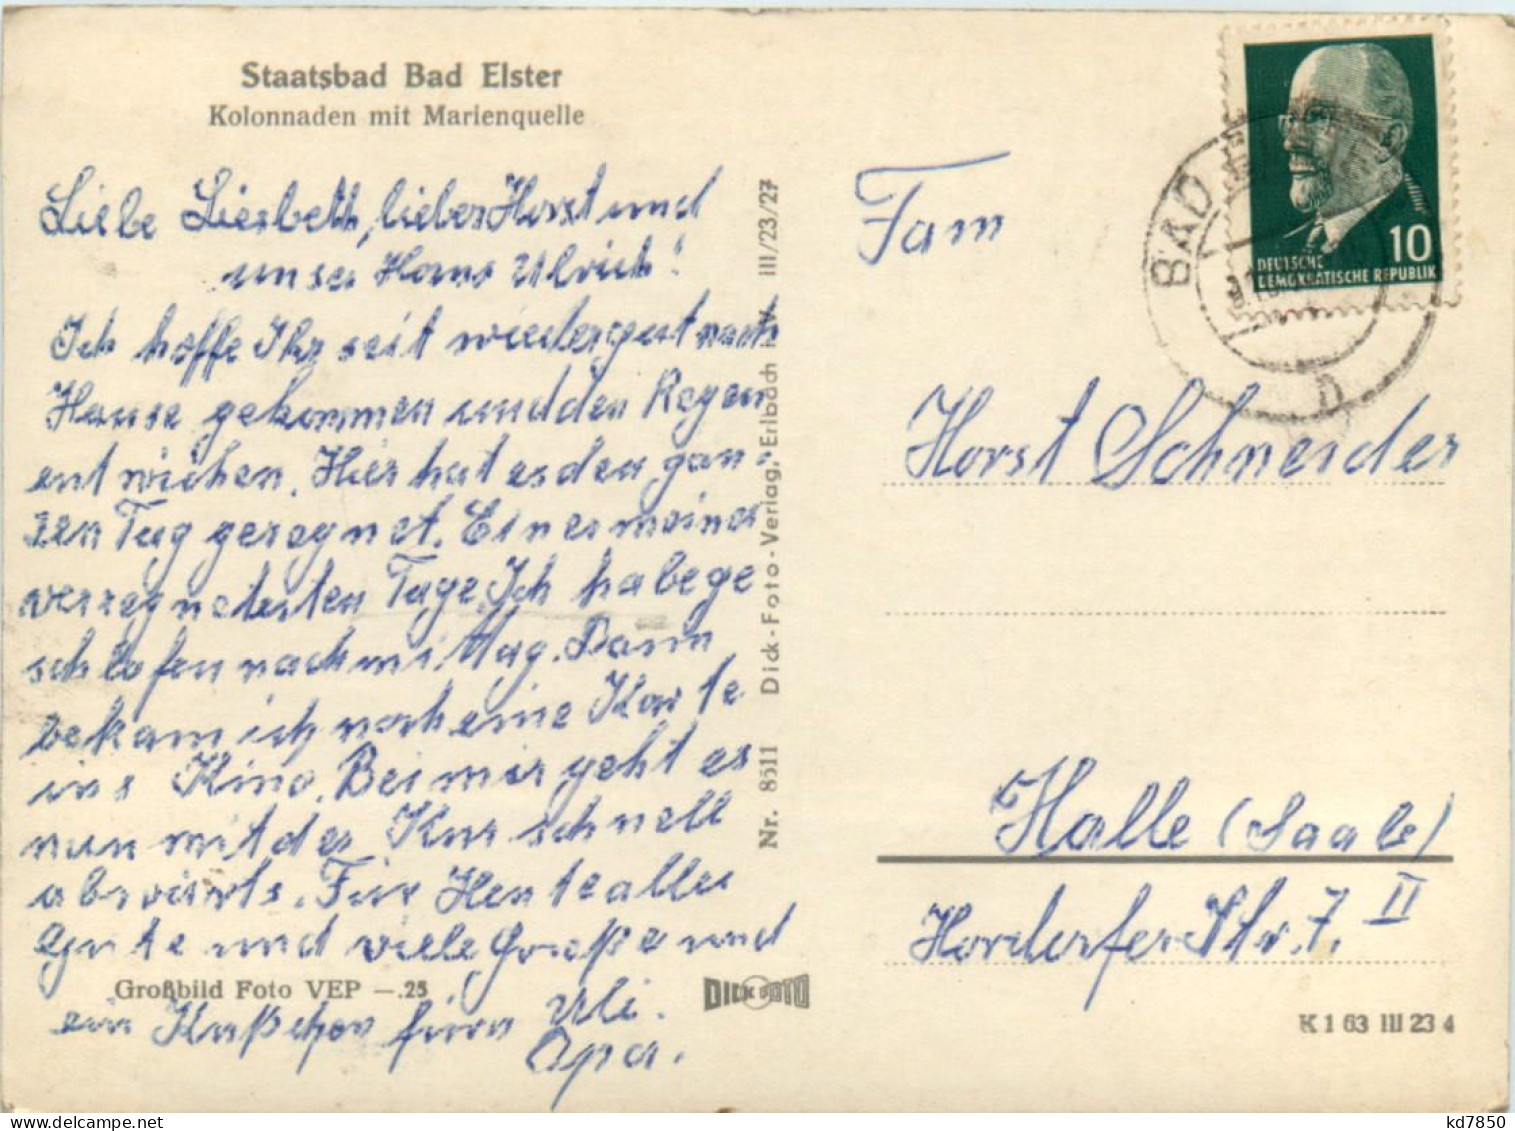 Staatsbad Bad Elster
Kolonnaden mit Marienquelle
Liebe Liesbeth, lieber Horst und
unser Hans Ulrich!
Ich hoffe Ihr seit wieder gut nach
Hause gekommen und den Regen
entwichen. Hier hat es den gan-
zen Tag geregnet. Einer meiner
verregnetesten Tage. Ich habe ge
schlafen nachmittag. Dann
bekam ich noch eine Karte
ins Kino. Bei mir geht es
nun mit der Kur schnell
abwärts. Für Heute alles
Gute und viele Grüße und
ein Küßchen fürn Uli.
Opa.
Großbild Foto VEP —.25
Nr. 8511 Dick-Foto-Verlag, Erlbach i. V. III/23/27
DICK FOTO
BAD
10
DEUTSCHE
DEMOKRATISCHE REPUBLIK
Fam
Horst Schneider
Halle (Saale)
Hordorfer Str. 7. II
K 1 63 III 23 4
kd7850